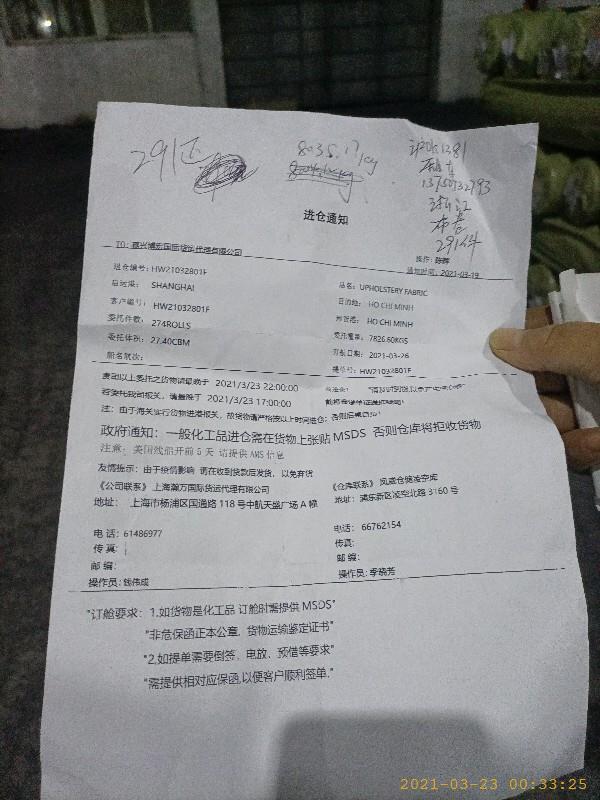 291
8035.17kg
13750732793
进仓通知
TO: 嘉兴博宏国际货运代理有限公司
操作: 陈辉
通知时间: 2021-03-19
进仓编号: HW21032801F
品名: UPHOLSTERY FABRIC
启运港: SHANGHAI
目的地: HO CHI MINH
客户编号: HW21032801F
卸货港: HO CHI MINH
委托件数: 274ROLLS
委托重量: 7826.60KGS
委托体积: 27.40CBM
开航日期: 2021-03-26
船名航次:
提单号: HW21032801F
麦司以上委托之货物请最晚于 2021/3/23 22:00:00
若委托我司报关, 请最晚于 2021/3/23 17:00:00
注: 由于海关实行货物进港报关, 故货物请严格按以上时间进仓; 否则后果自负!
政府通知: 一般化工品进仓需在货物上张贴 MSDS 否则仓库将拒收货物
注意: 美国线船开前 5 天 请提供 AMS 信息
友情提示: 由于疫情影响 请在收到货款后发货, 以免弃货
《公司联系》上海瀚万国际货运代理有限公司
《仓库联系》 凤嘉仓储凌空库
地址: 上海市杨浦区国通路 118 号中航天盛广场 A 幢
地址: 浦东新区凌空北路 3160 号
电 话: 61486977
电话: 66762154
传 真:
传真:
邮 编:
邮 编:
操作员: 钱伟成
操作员: 李晓芳
"订舱要求: 1.如货物是化工品 订舱时需提供 MSDS"
"非危保函正本公章, 货物运输鉴定证书"
"2.如提单需要倒签、电放、预借等要求"
"需提供相对应保函,以便客户顺利签单."
2021-03-23 00:33:25